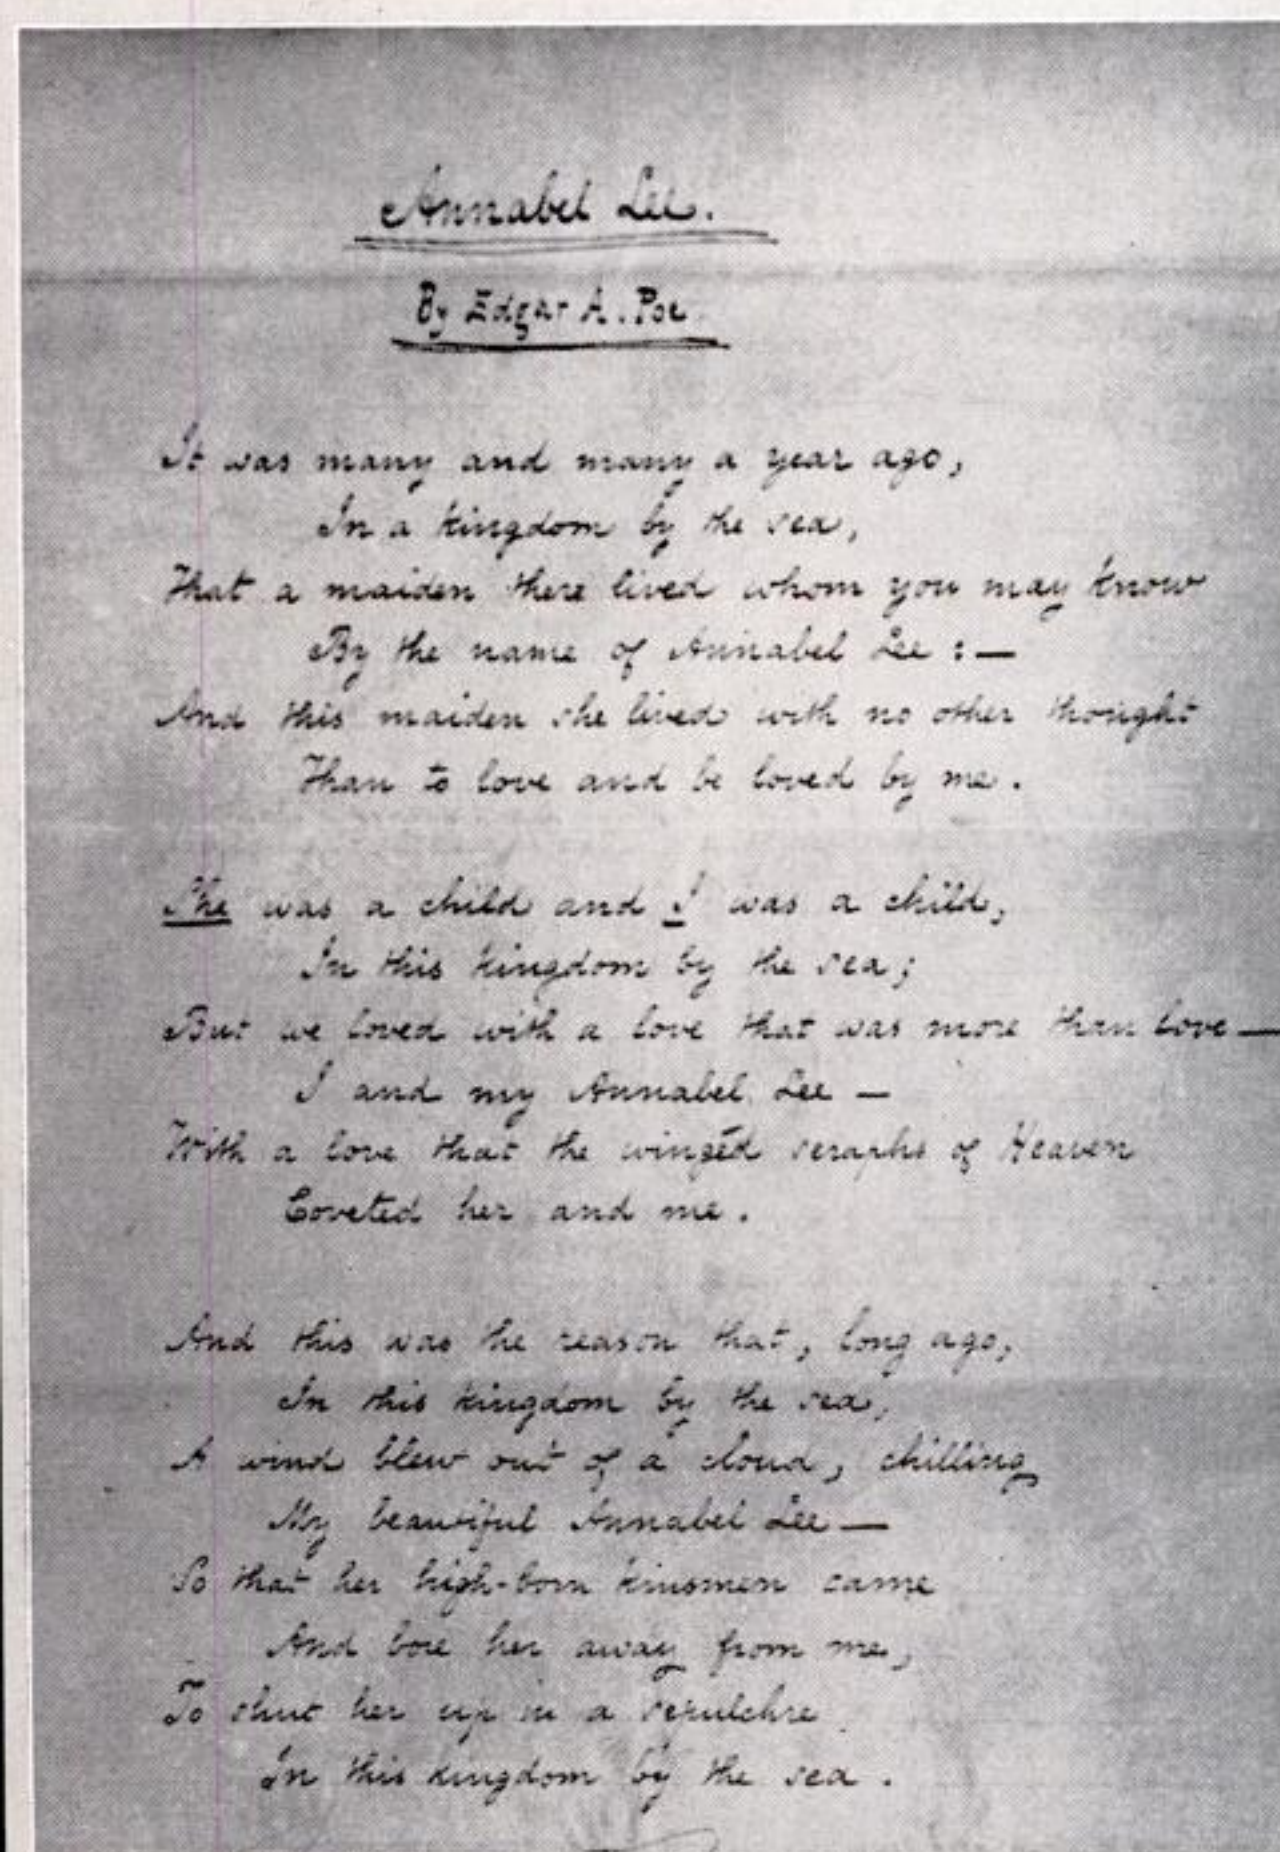 Annabel Lee.
By Edgar A. Poe.
It was many and many a year ago,
In a kingdom by the sea,
That a maiden there lived whom you may know
By the name of Annabel Lee :—
And this maiden she lived with no other thought
Than to love and be loved by me.
She was a child and I was a child,
In this kingdom by the sea;
But we loved with a love that was more than love —
I and my Annabel Lee —
With a love that the wingéd seraphs of Heaven
Coveted her and me.
And this was the reason that, long ago,
In this kingdom by the sea,
A wind blew out of a cloud, chilling
My beautiful Annabel Lee —
So that her high-born kinsmen came
And bore her away from me,
To shut her up in a sepulchre
In this kingdom by the sea.